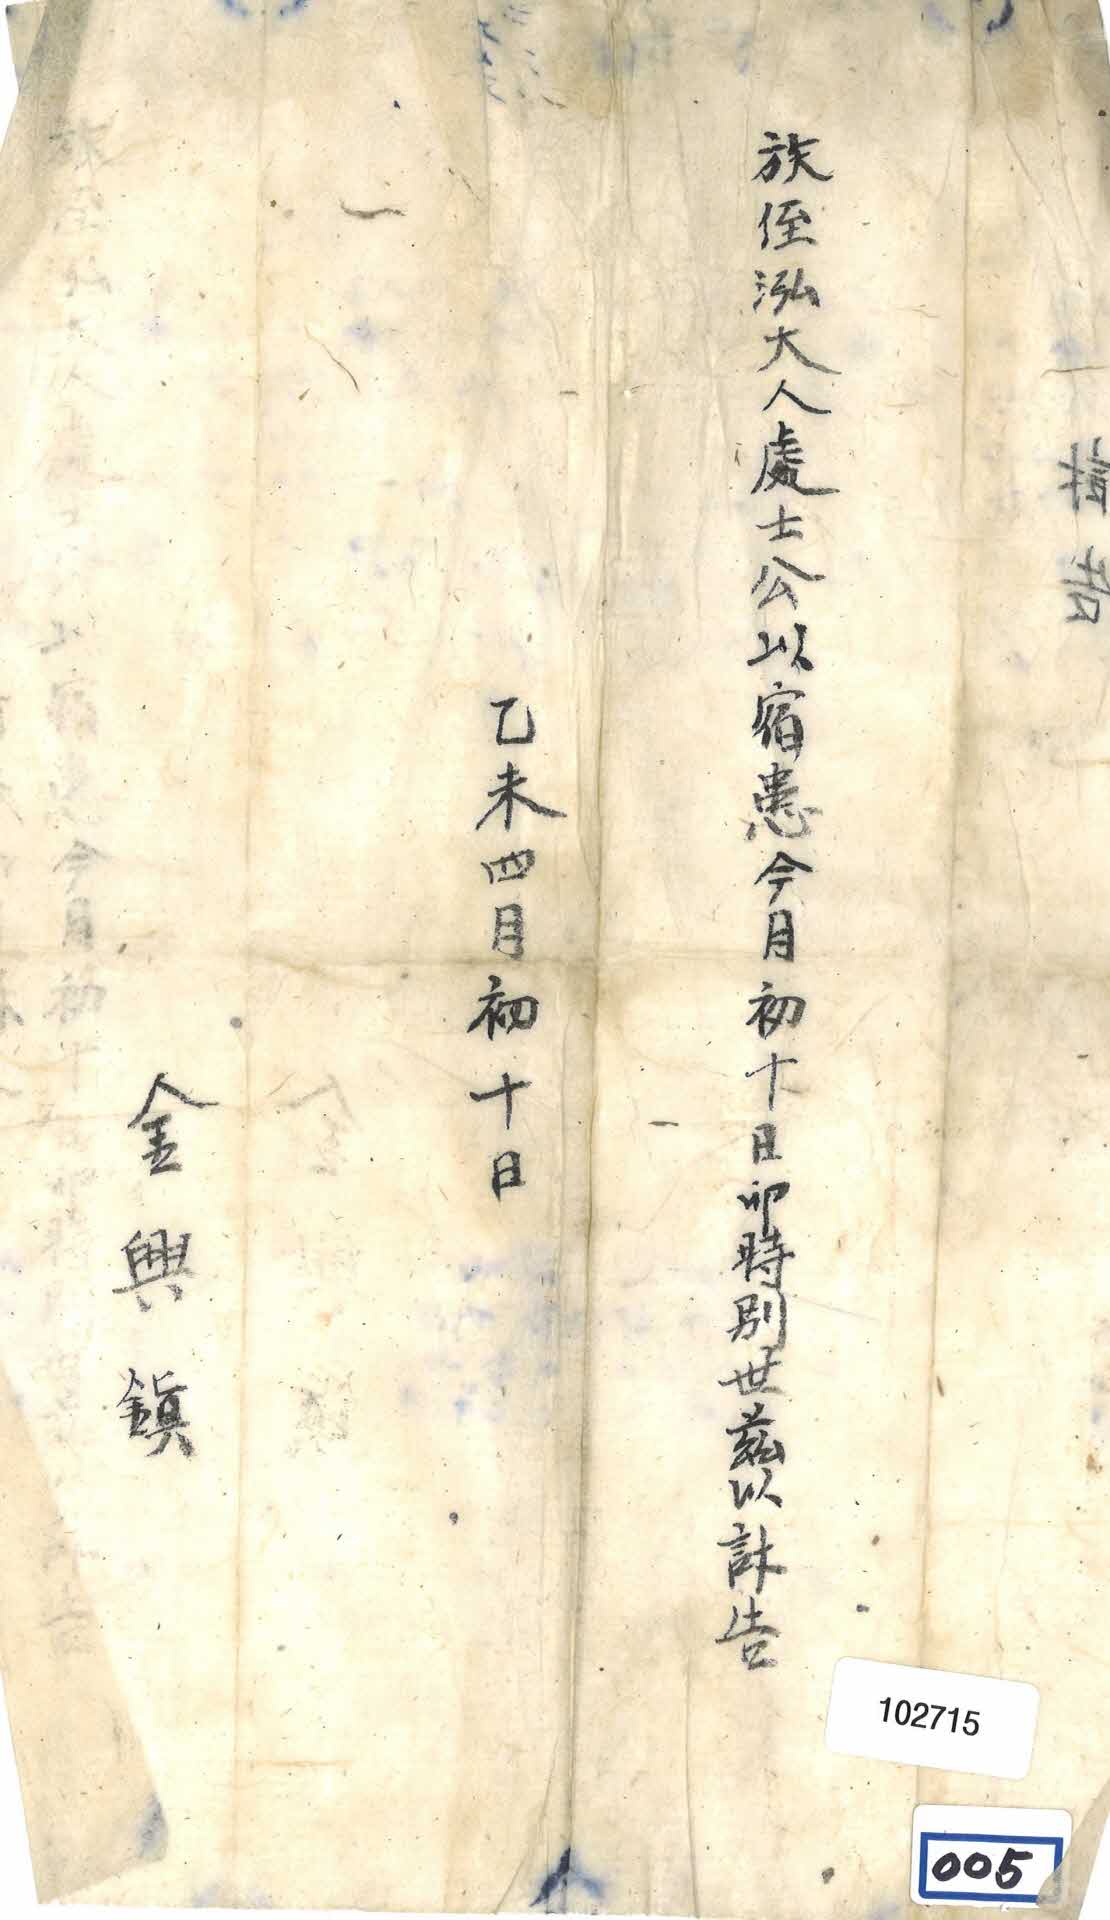 訃告
族侄泓大人處士公以宿患今月初十日卯時別世玆以訃告
乙未四月初十日
金興鎭
102715
005